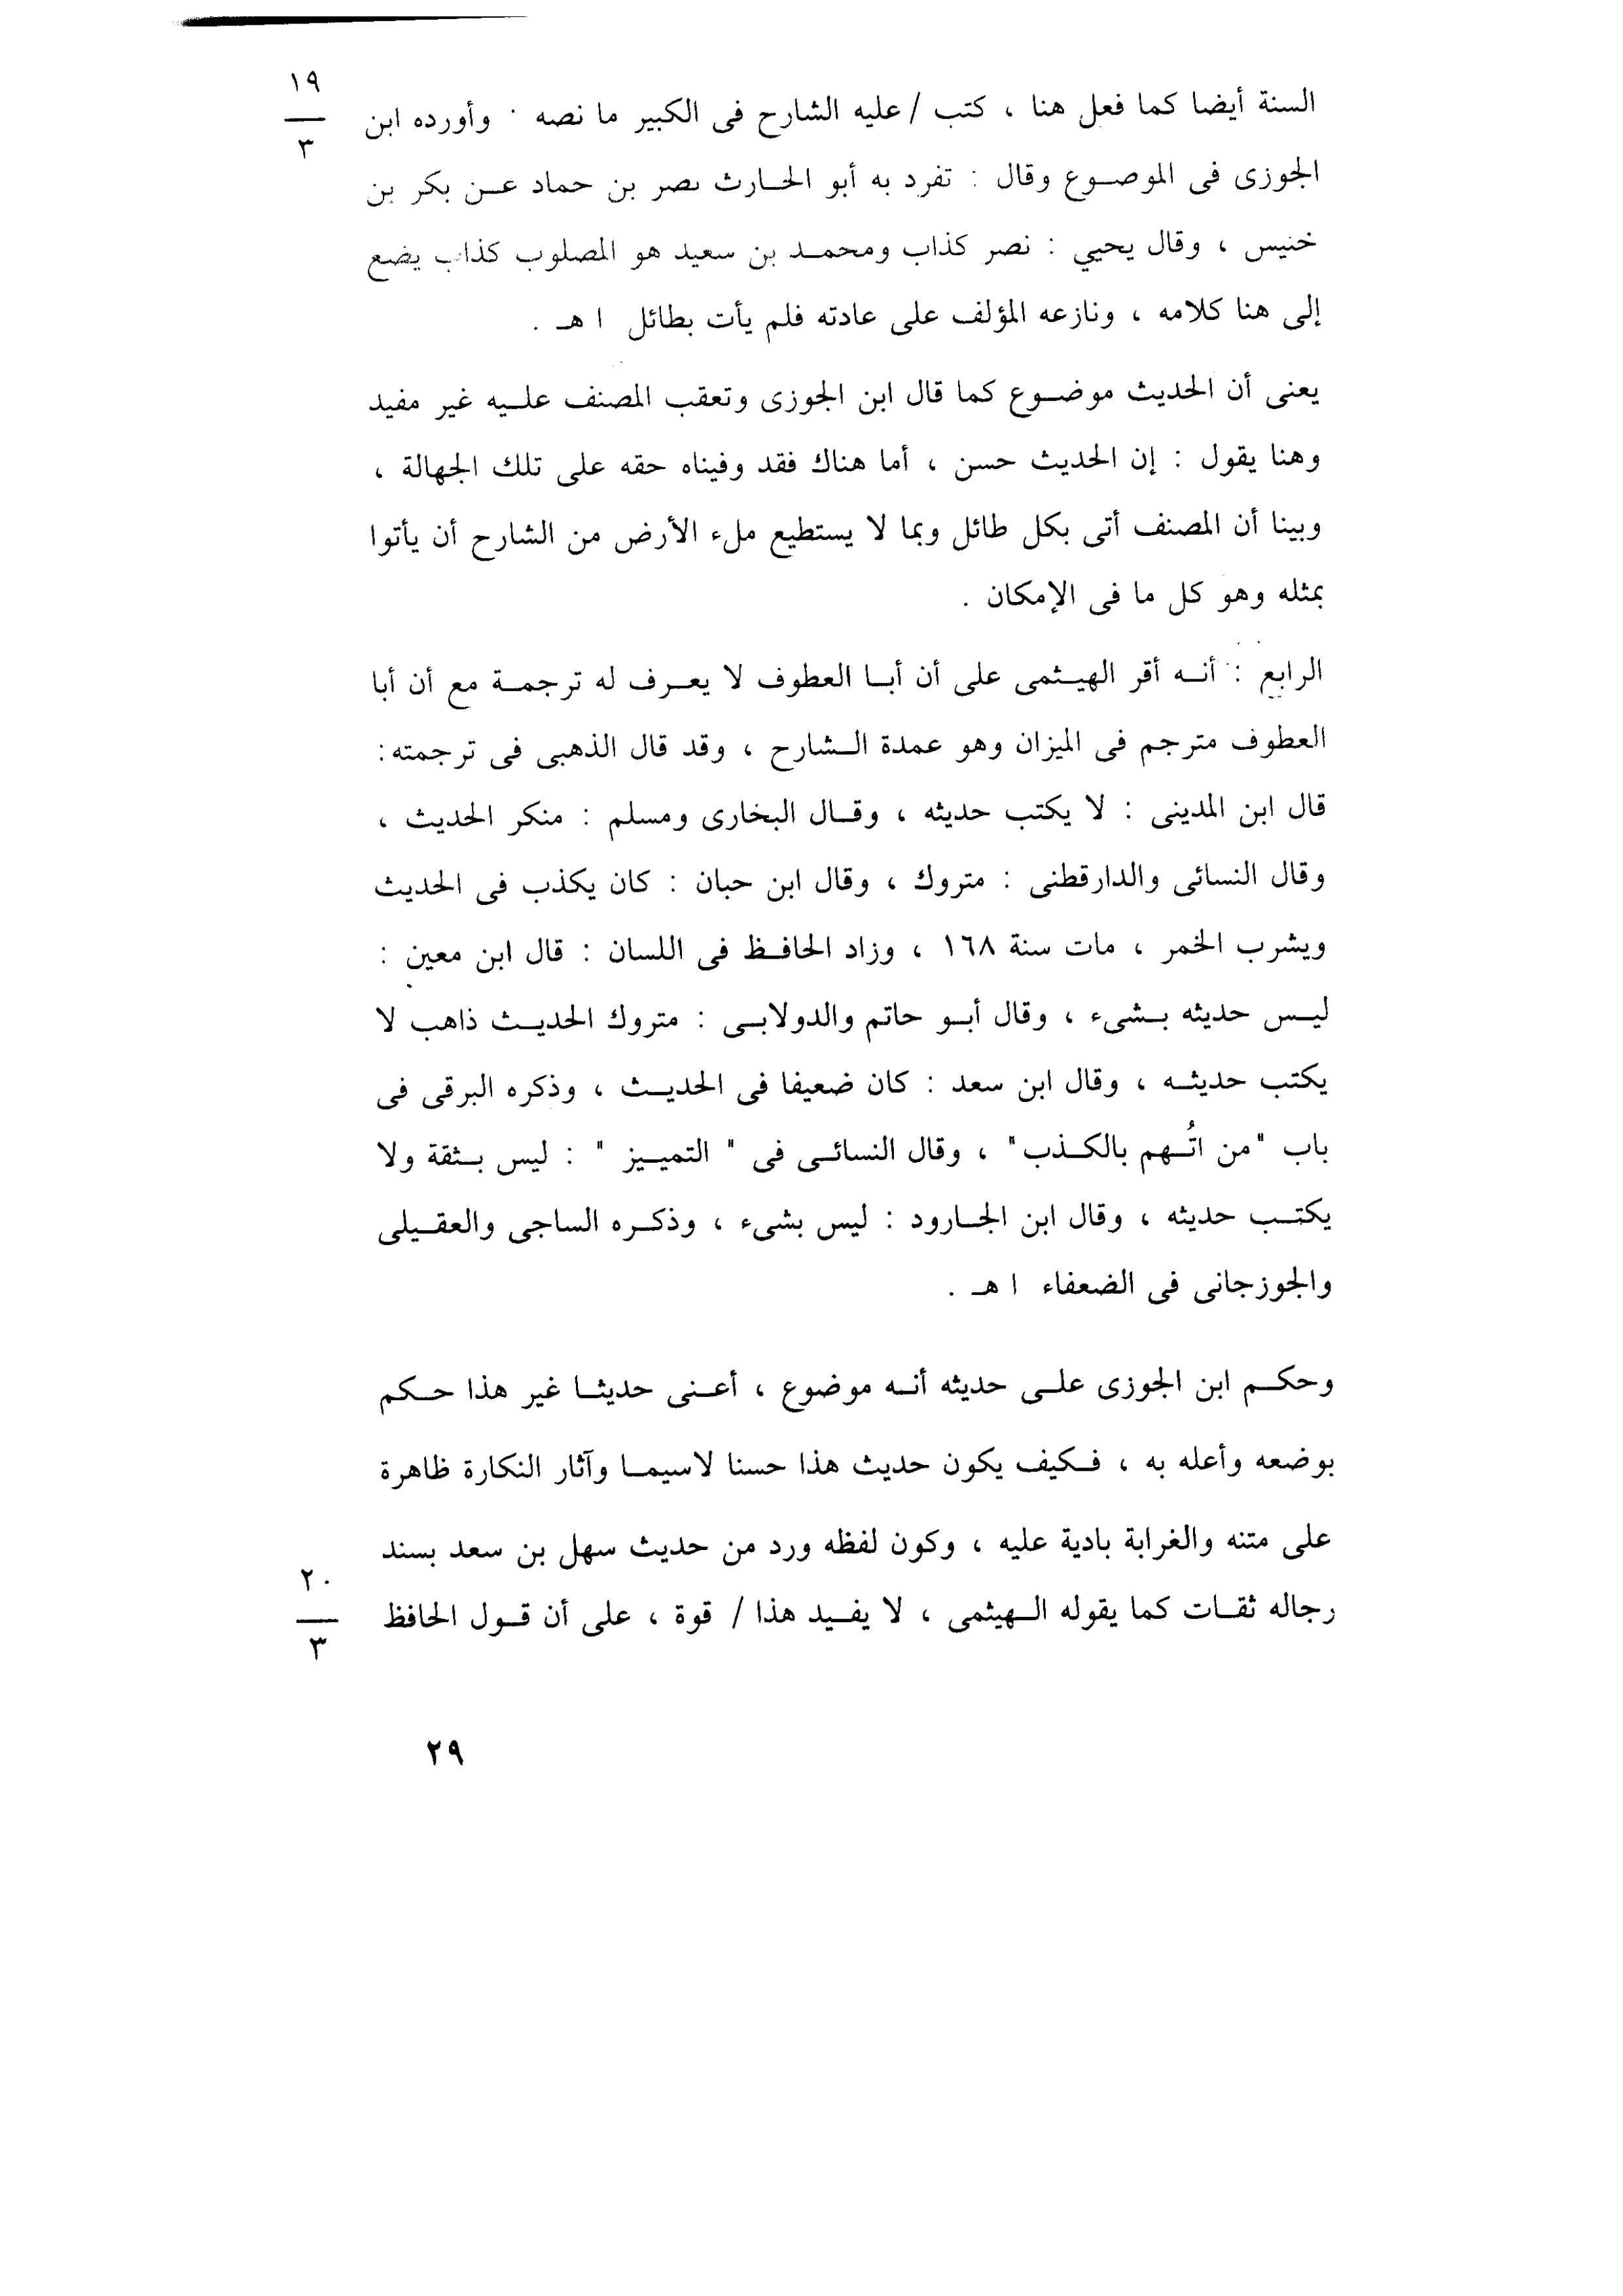 ١٩
٣
السنة أيضا كما فعل هنا ، كتب / عليه الشارح فى الكبير ما نصه : وأورده ابن
الجوزى فى الموضوع وقال : تفرد به أبو الحارث نصر بن حماد عن بكر بن
خنيس ، وقال يحيي : نصر كذاب ومحمد بن سعيد هو المصلوب كذاب يضع
إلى هنا كلامه ، ونازعه المؤلف على عادته فلم يأت بطائل ا هـ .
يعنى أن الحديث موضوع كما قال ابن الجوزى وتعقب المصنف عليه غير مفيد
وهنا يقول : إن الحديث حسن ، أما هناك فقد وفيناه حقه على تلك الجهالة ،
وبينا أن المصنف أتى بكل طائل وبما لا يستطيع ملء الأرض من الشارح أن يأتوا
بمثله وهو كل ما فى الإمكان .
الرابع : أنه أقر الهيثمى على أن أبا العطوف لا يعرف له ترجمة مع أن أبا
العطوف مترجم فى الميزان وهو عمدة الشارح ، وقد قال الذهبى فى ترجمته:
قال ابن المدينى : لا يكتب حديثه ، وقال البخارى ومسلم : منكر الحديث ،
وقال النسائى والدارقطنى : متروك ، وقال ابن حبان : كان يكذب فى الحديث
ويشرب الخمر ، مات سنة ١٦٨ ، وزاد الحافظ فى اللسان : قال ابن معين :
ليس حديثه بشىء ، وقال أبو حاتم والدولابى : متروك الحديث ذاهب لا
يكتب حديثه ، وقال ابن سعد : كان ضعيفا فى الحديث ، وذكره البرقى فى
باب "من اتُهم بالكذب" ، وقال النسائى فى " التمييز " : ليس بثقة ولا
يكتب حديثه ، وقال ابن الجارود : ليس بشىء ، وذكره الساجى والعقيلى
والجوزجانى فى الضعفاء ا هـ .
وحكم ابن الجوزى على حديثه أنه موضوع ، أعنى حديثا غير هذا حكم
بوضعه وأعله به ، فكيف يكون حديث هذا حسنا لاسيما وآثار النكارة ظاهرة
على متنه والغرابة بادية عليه ، وكون لفظه ورد من حديث سهل بن سعد بسند
رجاله ثقات كما يقوله الهيثمى ، لا يفيد هذا / قوة ، على أن قول الحافظ
٢٠
٣
٢٩